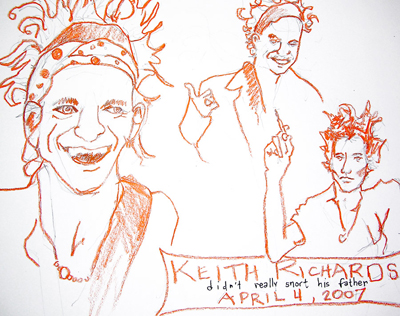 KEITH RICHARDS
didn't really snort his father
APRIL 4, 2007